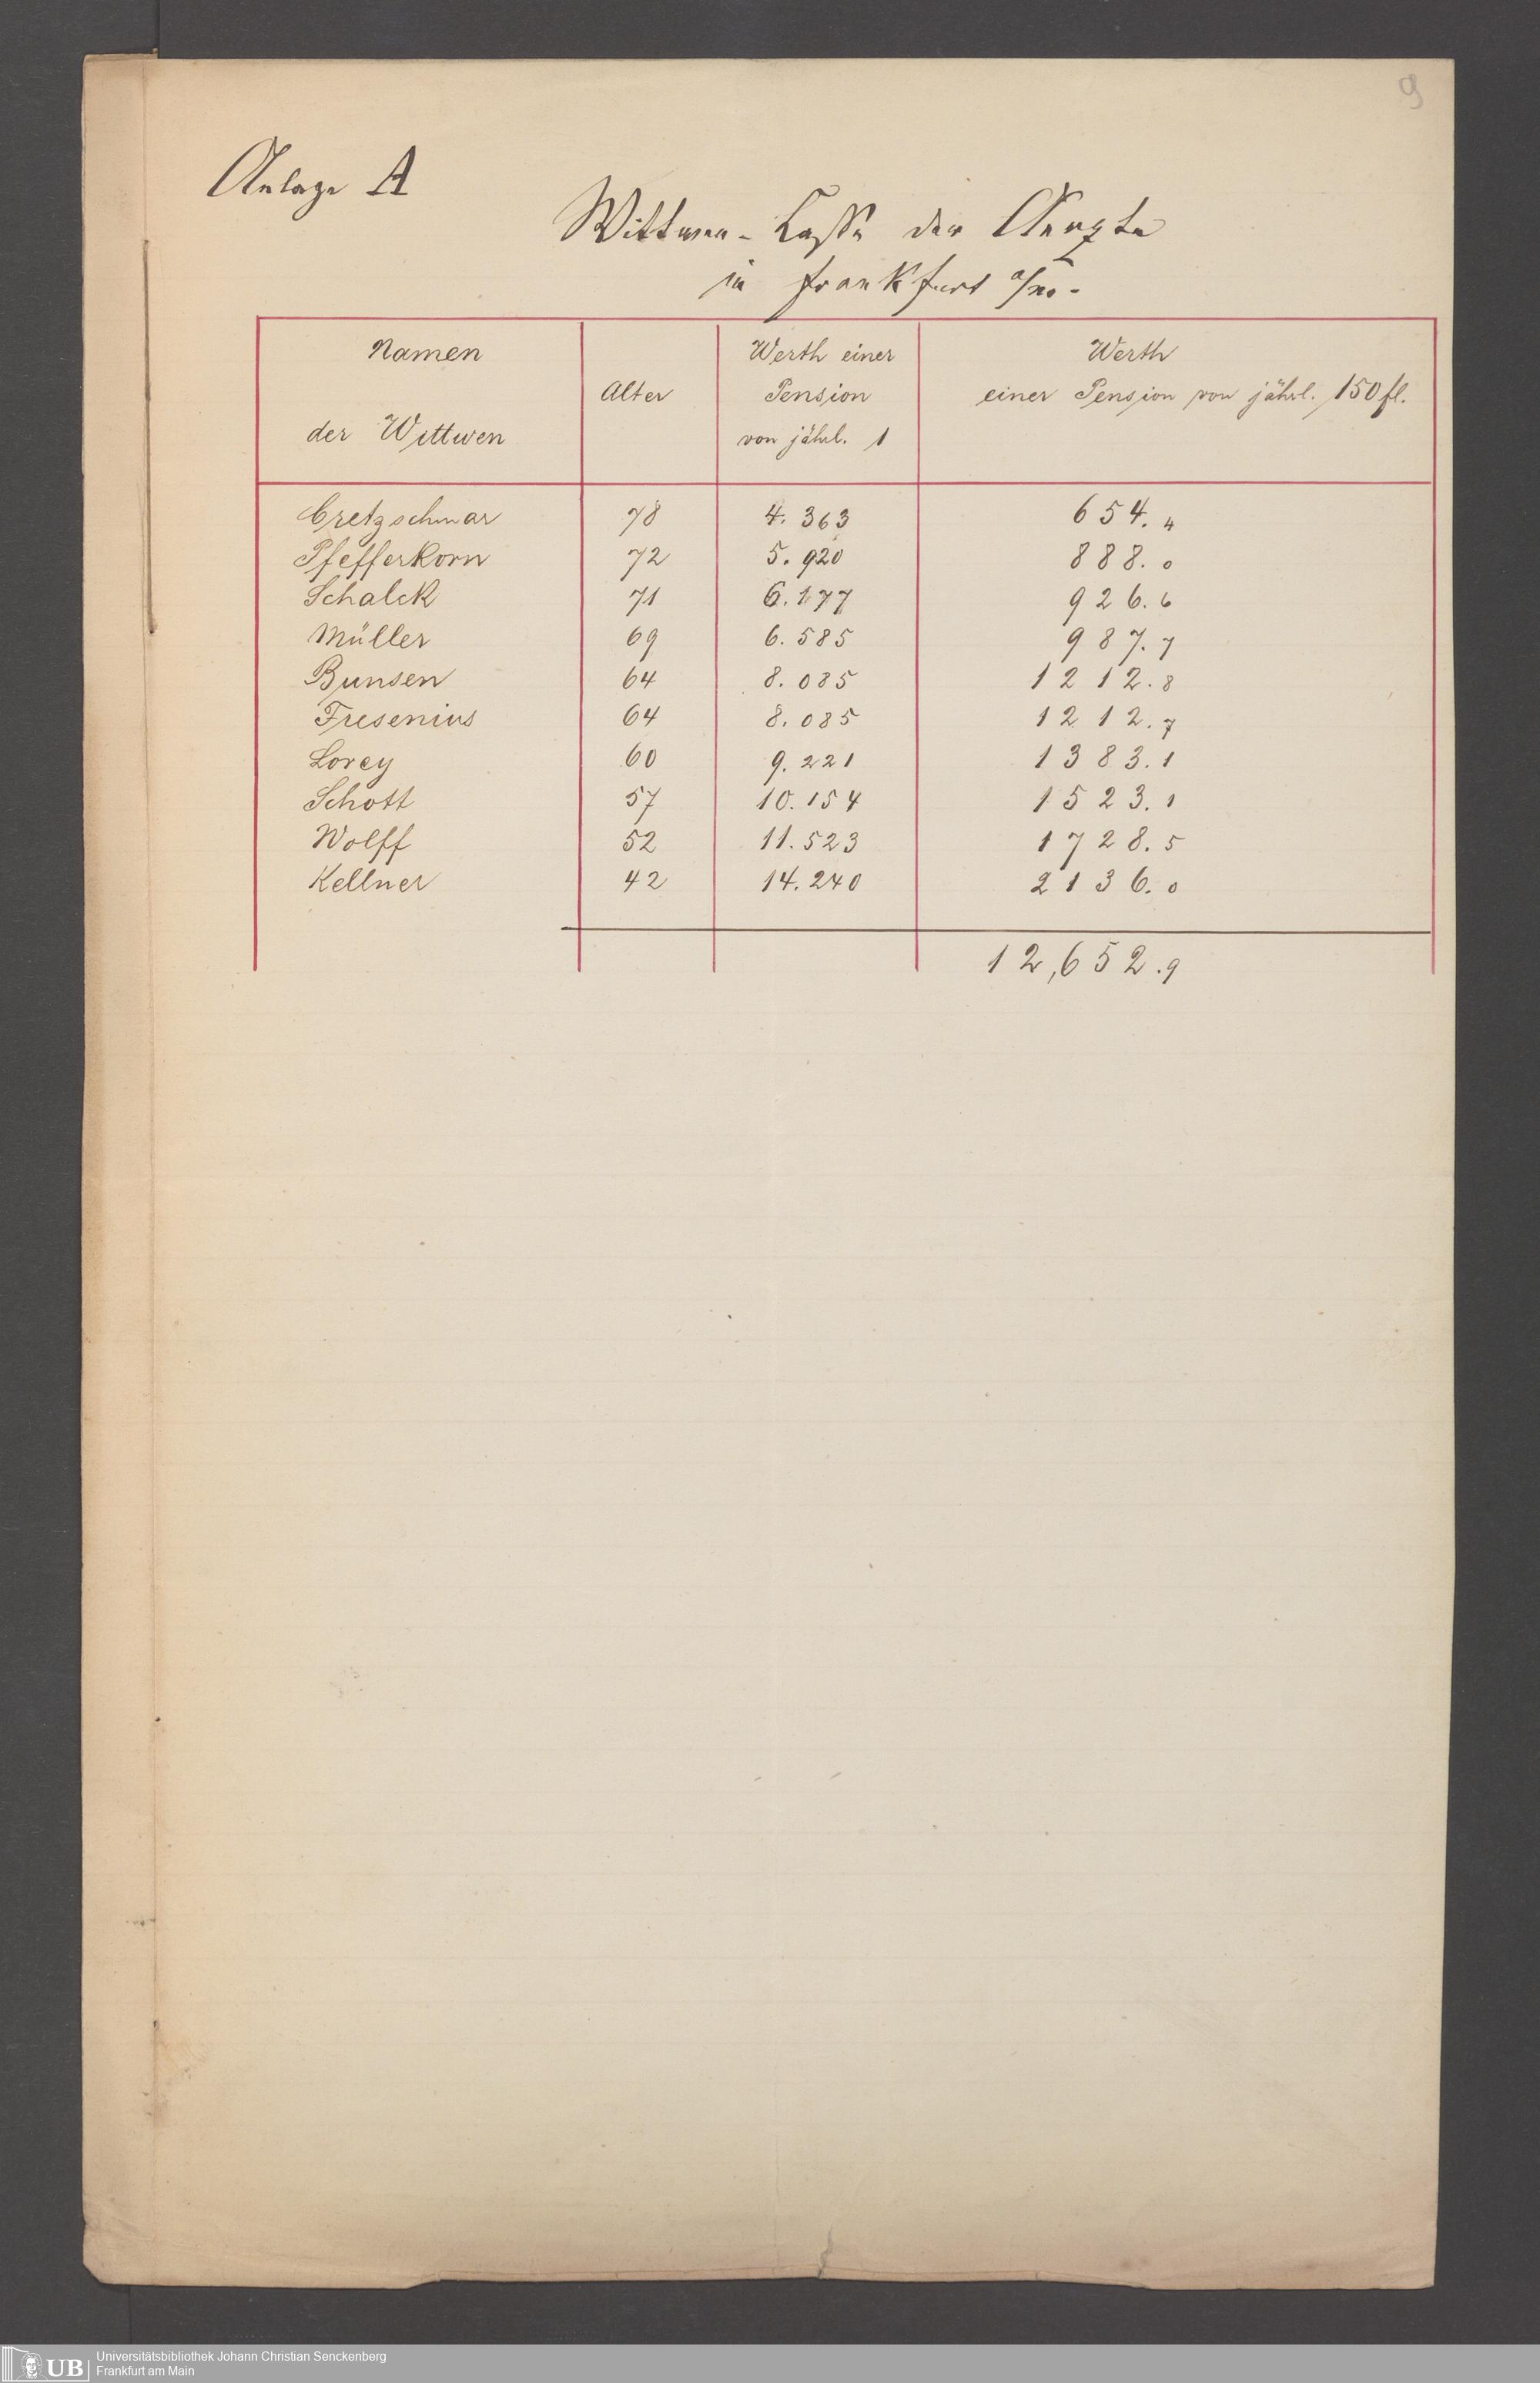 9
Anlage A
Wittwen-Casse der Aerzte
in Frankfurt a/m.
Namen der Wittwen | Alter | Werth einer Pension von jährl. 1 | Werth einer Pension von jährl. 150 fl.
Cretzschmar 78 4.363 654.4
Pfefferkorn 72 5.920 888.0
Schalck 71 6.177 926.6
Müller 69 6.585 987.7
Bunsen 64 8.085 1212.8
Fresenius 64 8.085 1212.7
Lorey 60 9.221 1383.1
Schott 57 10.154 1523.1
Wolff 52 11.523 1728.5
Kellner 42 14.240 2136.0
12,652.9
UB
Universitätsbibliothek Johann Christian Senckenberg
Frankfurt am Main